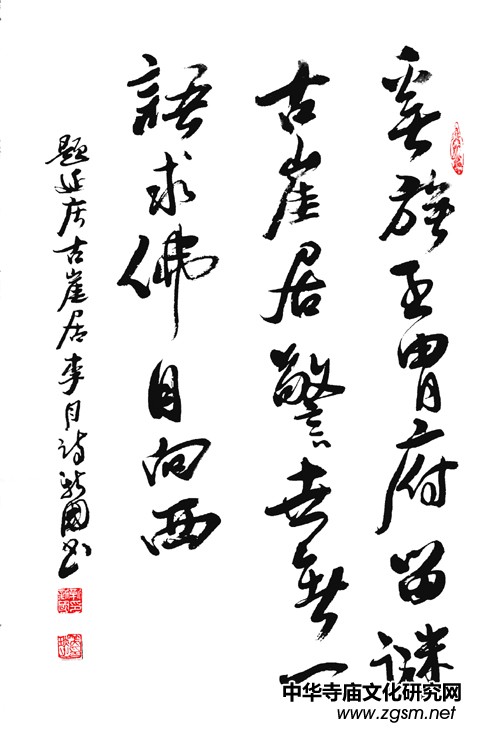 奚族王胄府留谜
古崖居警世無一
語求佛目向西
题延庆古崖居李月诗國书
中华寺庙文化研究网
www.zgsm.net